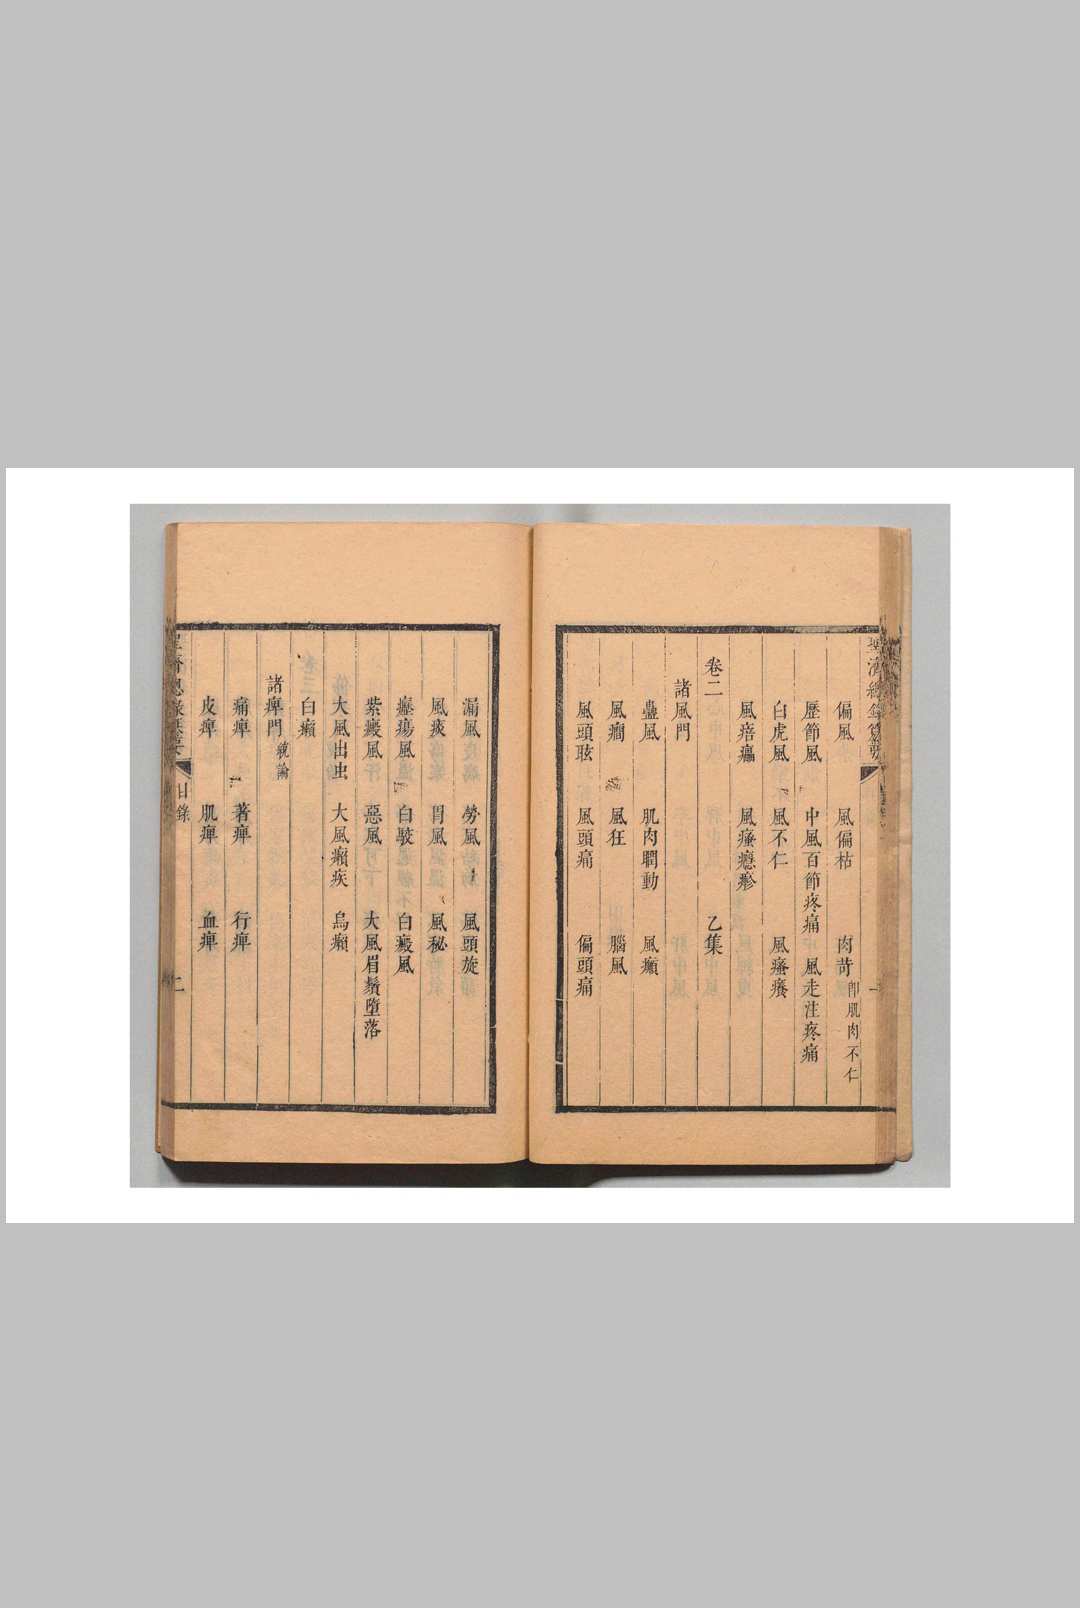 聖濟總錄纂要
一
偏風 風偏枯 肉苛 卽肌肉不仁
歷節風 中風百節疼痛 風走注疼痛
白虎風 風不仁 風瘙癢
風㾦㿔 風瘙癮疹
卷二 乙集
諸風門
蠱風 肌肉瞤動 風癲
風癎 風狂 腦風
風頭眩 風頭痛 偏頭痛
漏風 勞風 風頭旋
風痰 胃風 風秘
癧瘍風 白駮 白癜風
紫癜風 惡風 大風眉鬚墮落
大風出虫 大風癩疾 烏癩
白癩
諸痺門 統論
痛痺 著痺 行痺
皮痺 肌痺 血痺
目錄
二